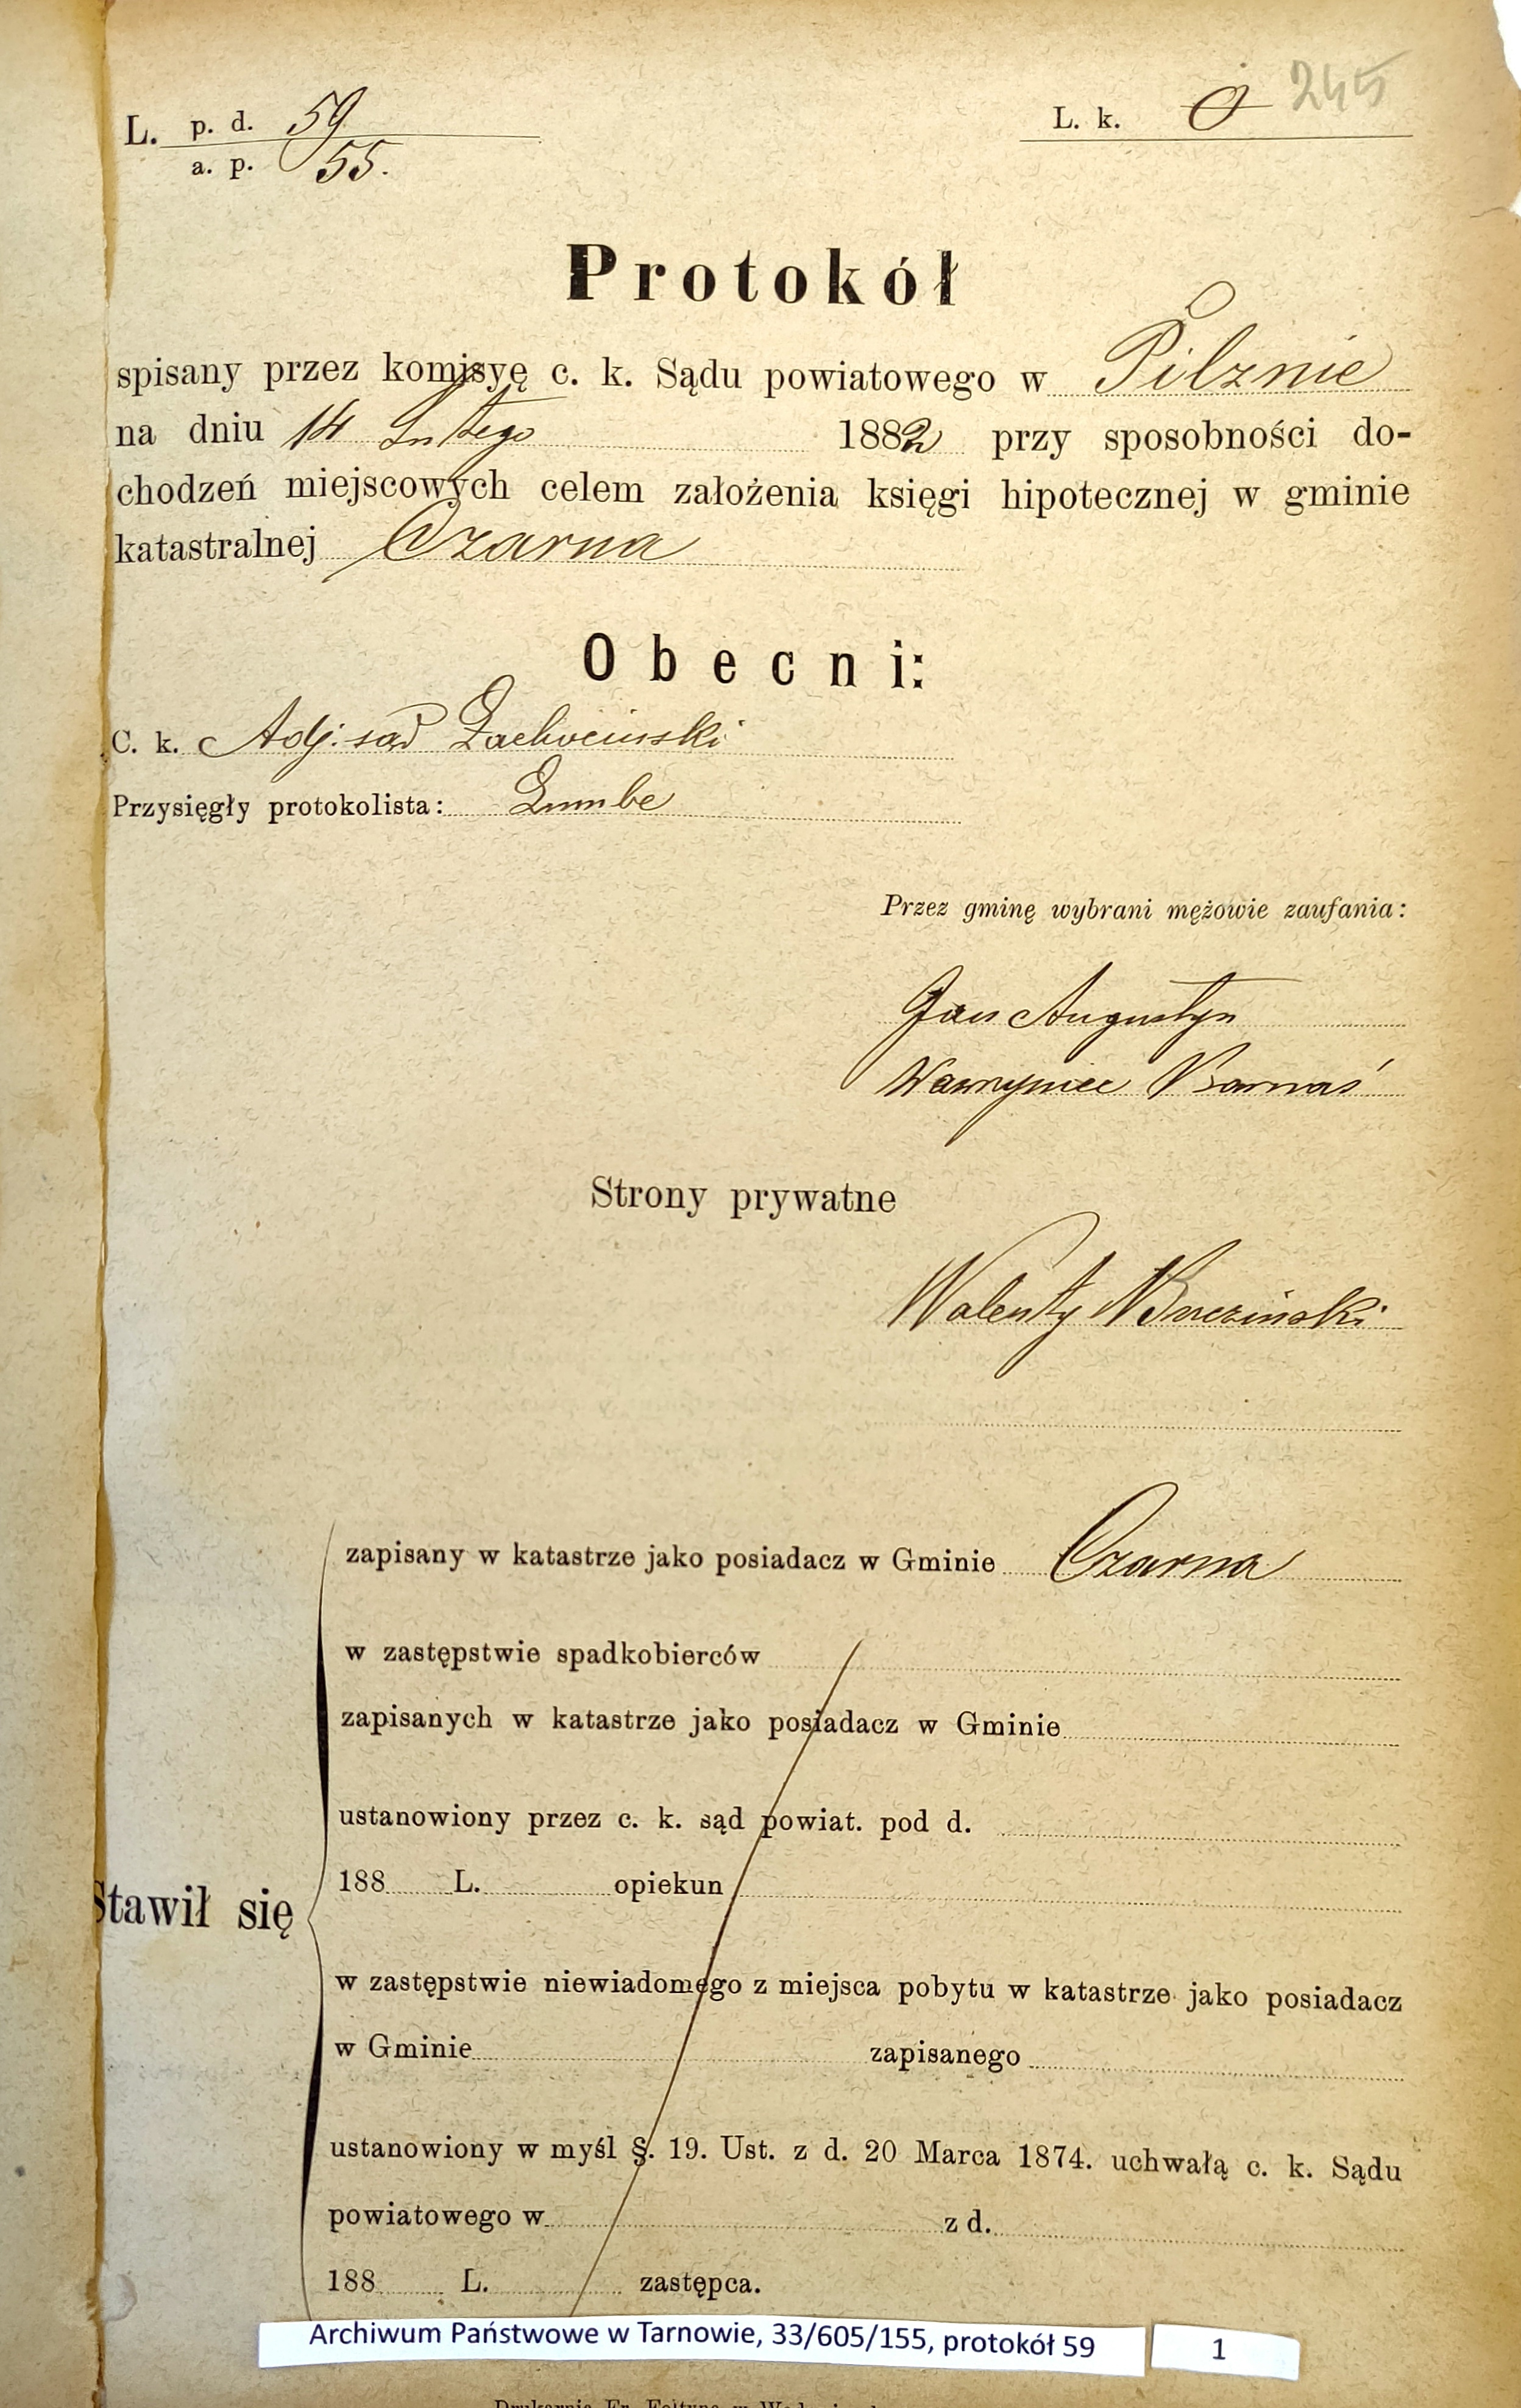 L. p. d. 59
a. p. 55.
L. k. 0 245
Protokół
spisany przez komisyę c. k. Sądu powiatowego w Pilznie
na dniu 14 Lutego 1882 przy sposobności do-
chodzeń miejscowych celem założenia księgi hipotecznej w gminie
katastralnej Czarna
Obecni:
C. k. Adj. sąd
Przysięgły protokolista:
Przez gminę wybrani mężowie zaufania:
Jan Augustyn
Wawrzyniec Barnaś
Strony prywatne
Walenty
zapisany w katastrze jako posiadacz w Gminie Czarna
w zastępstwie spadkobierców
zapisanych w katastrze jako posiadacz w Gminie
ustanowiony przez c. k. sąd powiat. pod d.
188 L. opiekun
Stawił się
w zastępstwie niewiadomego z miejsca pobytu w katastrze jako posiadacz
w Gminie zapisanego
ustanowiony w myśl §. 19. Ust. z d. 20 Marca 1874. uchwałą c. k. Sądu
powiatowego w z d.
188 L. zastępca.
Archiwum Państwowe w Tarnowie, 33/605/155, protokół 59 1